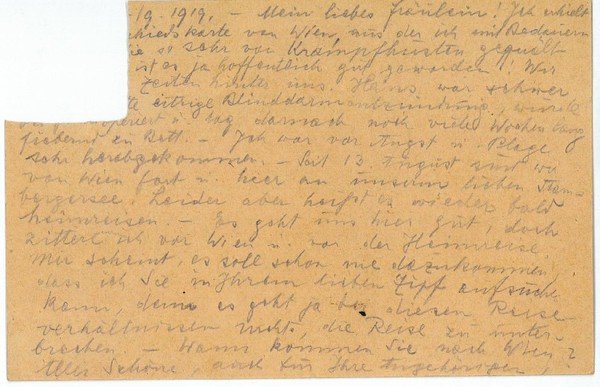 /9. 1919. – Mein liebes Fräulein! Ich erhielt
chiedskarte von Wien, aus der ich mit Bedauern
Sie so sehr von Krampfhusten gequält
ist es ja hoffentlich gut geworden! Wir
Zeiten hinter uns. Hans war schwer
te eitrige Blinddarmentzündung, wurde
operiert u. lag darnach noch viele Wochen lang
fiebernd zu Bett. – Ich war vor Angst u. Plage
sehr herabgekommen. – Seit 13 August sind wir
von Wien fort u. hier an unserem lieben Starn-
bergersee. Leider aber heißt es wieder bald
heimreisen. – Es geht uns hier gut, doch
zittert ich vor Wien u. vor der Heimreise.
Mir scheint, es soll schon nie dazukommen,
dass ich Sie in Ihrem lieben Zipf aufsuchen
kann, denn es geht ja bei diesen Reise-
verhältnissen nicht, die Reise zu unter-
brechen. – Wann kommen Sie nach Wien?
Alles Schöne auch für Ihre Angehörigen